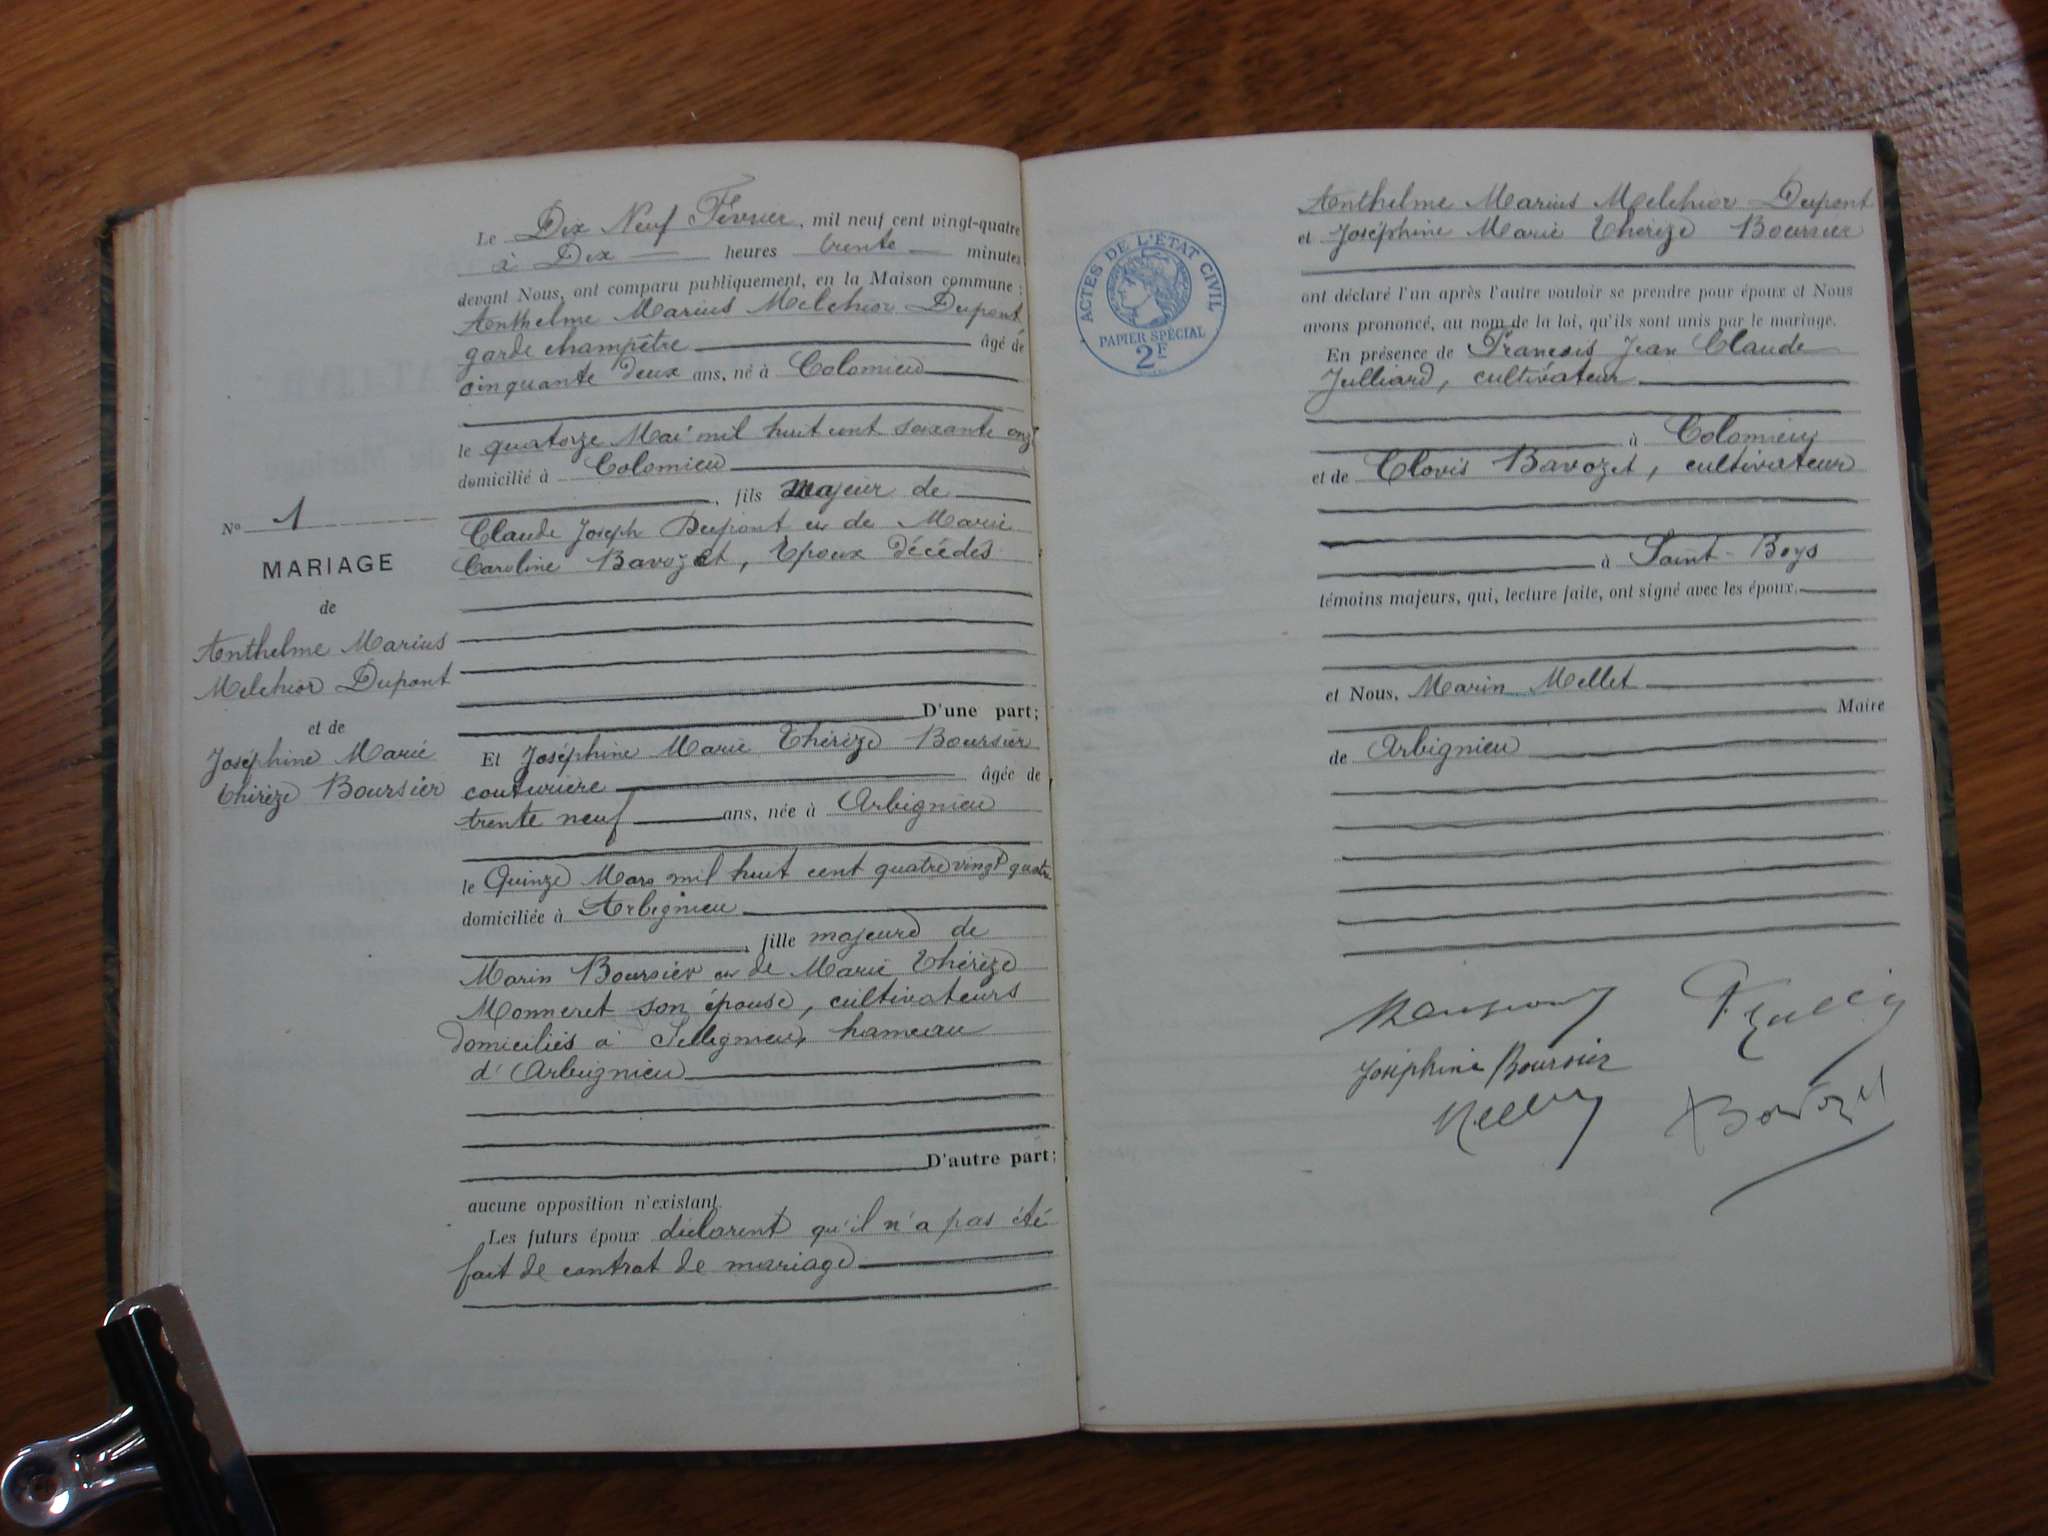 Le Dix Neuf Février, mil neuf cent vingt-quatre
à Dix heures trente minutes
devant Nous, ont comparu publiquement, en la Maison commune :
Anthelme Marius Melchior Dupont
garde champêtre âgé de
cinquante deux ans, né à Colomieu
le quatorze Mai mil huit cent soixante onze
domicilié à Colomieu
, fils majeur de
Claude Joseph Dupont et de Marie
Caroline Bavozet, Epoux décédés
D'une part;
N° 1
MARIAGE
de
Anthelme Marius
Melchior Dupont
et de
Joséphine Marie
Thérèze Boursier
Et Joséphine Marie Thérèze Boursier
couturière âgée de
trente neuf ans, née à Arbignieu
le Quinze Mars mil huit cent quatre vingt quatre
domiciliée à Arbignieu
, fille majeure de
Marin Boursier et de Marie Thérèze
Monneret son épouse, cultivateurs
domiciliés à Sillignieu, hameau
d'Arbignieu
D'autre part;
aucune opposition n'existant.
Les futurs époux déclarent qu'il n'a pas été
fait de contrat de mariage
ACTES DE L'ÉTAT CIVIL
PAPIER SPÉCIAL
2F
Anthelme Marius Melchior Dupont
et Joséphine Marie Thérèze Boursier
ont déclaré l'un après l'autre vouloir se prendre pour époux et Nous
avons prononcé, au nom de la loi, qu'ils sont unis par le mariage.
En présence de François Jean Claude
Julliard, cultivateur
à Colomieu
et de Clovis Bavozet, cultivateur
à Saint-Boys
témoins majeurs, qui, lecture faite, ont signé avec les époux.
et Nous, Marin Mellet
Maire
de Arbignieu
Joséphine Boursier
Mellet
Bavozet